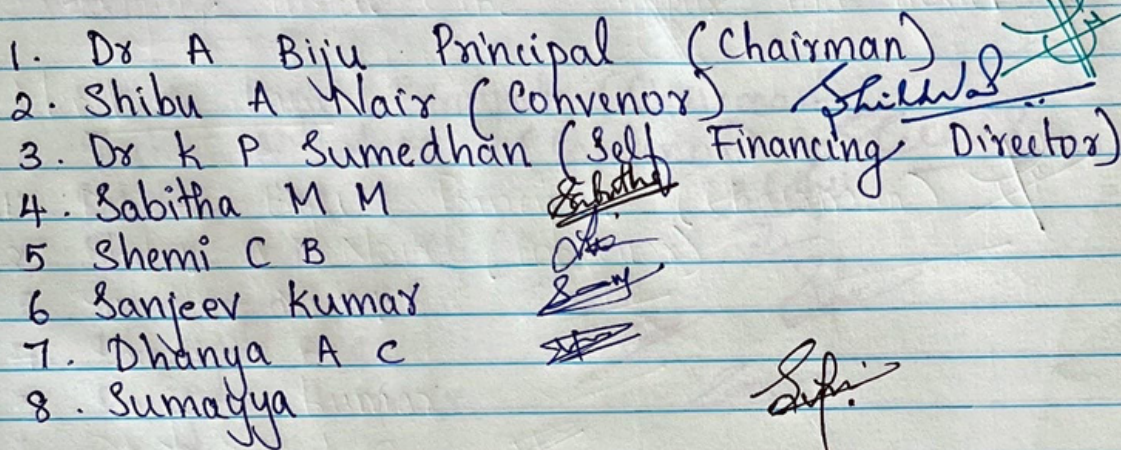 1. Dr A Biju Principal (Chairman)
2. Shibu A Nair (Convenor)
3. Dr K P Sumedhan (Self Financing Director)
4. Sabitha M M
5 Shemi C B
6 Sanjeev Kumar
7. Dhanya A C
8. Sumayya